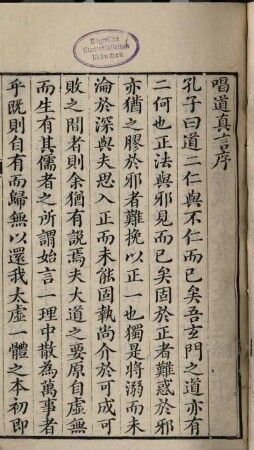 Bayerische
Staatsbibliothek
München
唱道真言序
孔子曰道二仁與不仁而已矣吾玄門之道亦有
二何也正法與邪見而已矣固於正者難惑於邪
亦猶之膠於邪者難挽以正一也獨是將溺而未
淪於深與夫思入正而未能固執尚介於可成可
敗之間者則余猶有説焉夫大道之要原自虛無
而生有其儒者之所謂始言一理中散為萬事者
乎既則自有而歸無以還我太虛一體之本初即